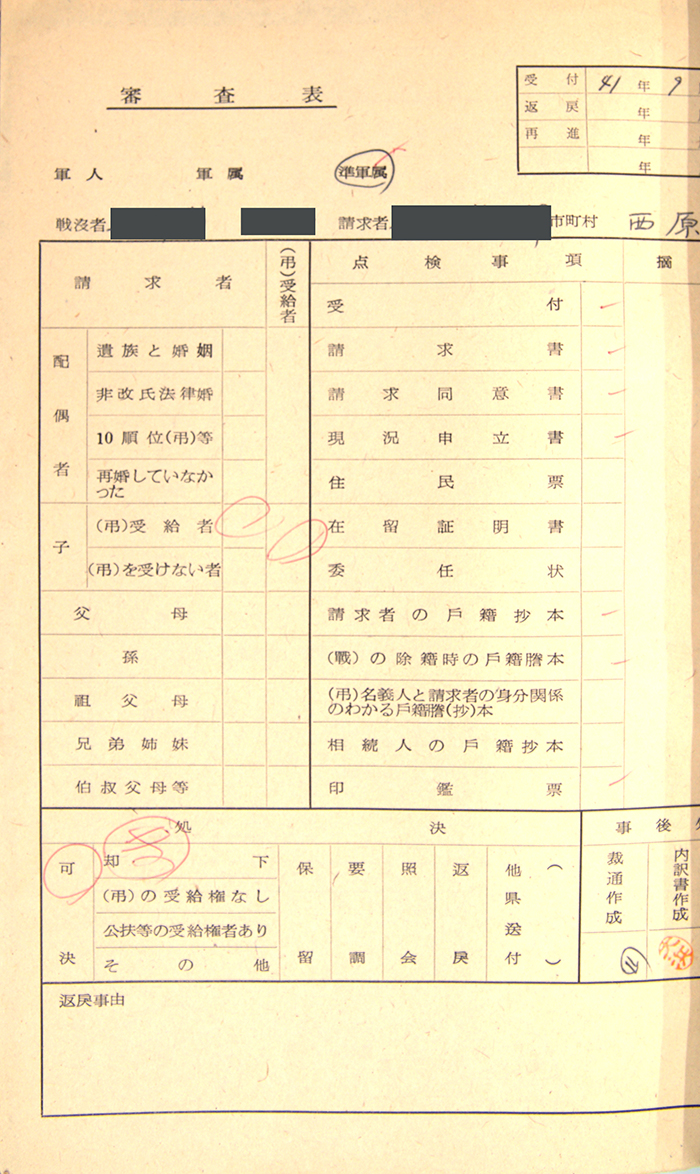 審査表
受付 41年9
返戻 年
再進 年
年
軍人 軍属 準軍属
戦没者 請求者 市町村 西原
請求者 (弔)受給者 点検事項 摘
配偶者 遺族と婚姻
非改氏法律婚
10順位(弔)等
再婚していなか
った
子 (弔)受給者
(弔)を受けない者
父母
孫
祖父母
兄弟姉妹
伯叔父母等
受付
請求書
請求同意書
現況申立書
住民票
在留証明書
委任状
請求者の戸籍抄本
(戦)の除籍時の戸籍謄本
(弔)名義人と請求者の身分関係
のわかる戸籍謄(抄)本
相続人の戸籍抄本
印鑑票
処決 事後処
可決
却下
(弔)の受給権なし
公扶等の受給権者あり
その他
保留
要調
照会
返戻
他県送付( )
裁通作成
内訳書作成
返戻事由